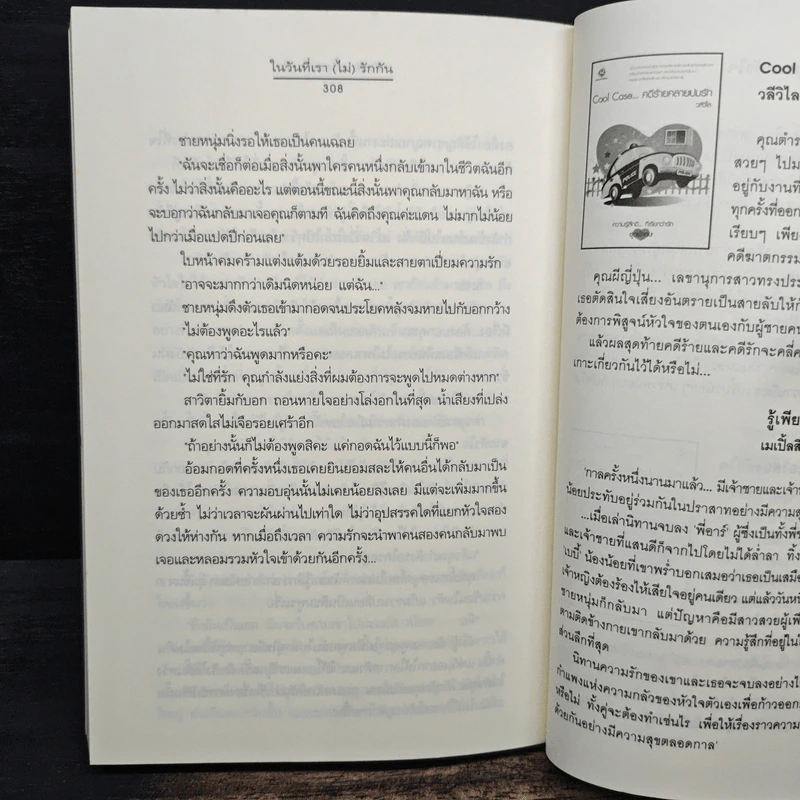 ในวันที่เรา (ไม่) รักกัน
308
ชายหนุ่มนิ่งรอให้เธอเป็นคนเฉลย
"ฉันจะเชื่อก็ต่อเมื่อสิ่งนั้นพาใครคนหนึ่งกลับเข้ามาในชีวิตฉันอีก
ครั้ง ไม่ว่าสิ่งนั้นคืออะไร แต่ตอนนี้ขณะนี้สิ่งนั้นพาคุณกลับมาหาฉัน หรือ
จะบอกว่าฉันกลับมาเจอคุณก็ตามที ฉันคิดถึงคุณค่ะแดน ไม่มากไม่น้อย
ไปกว่าเมื่อแปดปีก่อนเลย"
ใบหน้าคมคร้ามแต่งแต้มด้วยรอยยิ้มและสายตาเปี่ยมความรัก
"อาจจะมากกว่าเดิมนิดหน่อย แต่ฉัน..."
ชายหนุ่มดึงตัวเธอเข้ามากอดจนประโยคหลังจมหายไปกับอกกว้าง
"ไม่ต้องพูดอะไรแล้ว"
"คุณหาว่าฉันพูดมากหรือคะ"
"ไม่ใช่ที่รัก คุณกำลังแย่งสิ่งที่ผมต้องการจะพูดไปหมดต่างหาก"
สาวิตายิ้มกับอก ถอนหายใจอย่างโล่งอกในที่สุด น้ำเสียงที่เปล่ง
ออกมาสดใสไม่เจือรอยเศร้าอีก
"ถ้าอย่างนั้นก็ไม่ต้องพูดสิคะ แค่กอดฉันไว้แบบนี้ก็พอ"
อ้อมกอดที่ครั้งหนึ่งเธอเคยยินยอมสละให้คนอื่นได้กลับมาเป็น
ของเธออีกครั้ง ความอบอุ่นนั้นไม่เคยน้อยลงเลย มีแต่จะเพิ่มมากขึ้น
ด้วยซ้ำ ไม่ว่าเวลาจะผันผ่านไปเท่าใด ไม่ว่าอุปสรรคใดที่แยกหัวใจสอง
ดวงให้ห่างกัน หากเมื่อถึงเวลา ความรักจะนำพาคนสองคนกลับมาพบ
เจอและหลอมรวมหัวใจเข้าด้วยกันอีกครั้ง...
Cool Case... คดีร้ายคลายปมรัก
วลีวิไล
POLICE
ความรู้สึกดี... ที่เรียกว่ารัก
Cool
วลีวิไล
คุณตำร
สวยๆ ไปม
อยู่กับงานที่
ทุกครั้งที่ออก
เรียบๆ เพีย
คดีฆาตกรรม
คุณผีญี่ปุ่น... เลขานุการสาวทรงประ
เธอตัดสินใจเสี่ยงอันตรายเป็นสายลับให้กั
ต้องการพิสูจน์หัวใจของตนเองกับผู้ชายคน
แล้วผลสุดท้ายคดีร้ายและคดีรักจะคลี่ค
เกาะเกี่ยวกันไว้ได้หรือไม่...
รู้เพีย
เมเปิ้ลสี
'กาลครั้งหนึ่งนานมาแล้ว... มีเจ้าชายและเจ้าห
น้อยประทับอยู่ร่วมกันในปราสาทอย่างมีความสุ
...เมื่อเล่านิทานจบลง 'พี่อาร์' ผู้ซึ่งเป็นทั้งพี่ช
และเจ้าชายที่แสนดีก็จากไปโดยไม่ได้ล่ำลา ทิ้ง
'เบบี้' น้องน้อยที่เขาพร่ำบอกเสมอว่าเธอเป็นเสมือ
เจ้าหญิงต้องร้องไห้เสียใจอยู่คนเดียว แต่แล้ววันหนึ
ชายหนุ่มก็กลับมา แต่ปัญหาคือมีสาวสวยผู้เพีย
ตามติดข้างกายเขากลับมาด้วย ความรู้สึกที่อยู่ในใ
ส่วนลึกที่สุด
นิทานความรักของเขาและเธอจะจบลงอย่างไ
กำแพงแห่งความกลัวของหัวใจตัวเองเพื่อก้าวออก
หรือไม่ ทั้งคู่จะต้องทำเช่นไร เพื่อให้เรื่องราวความ
ด้วยกันอย่างมีความสุขตลอดกาล'